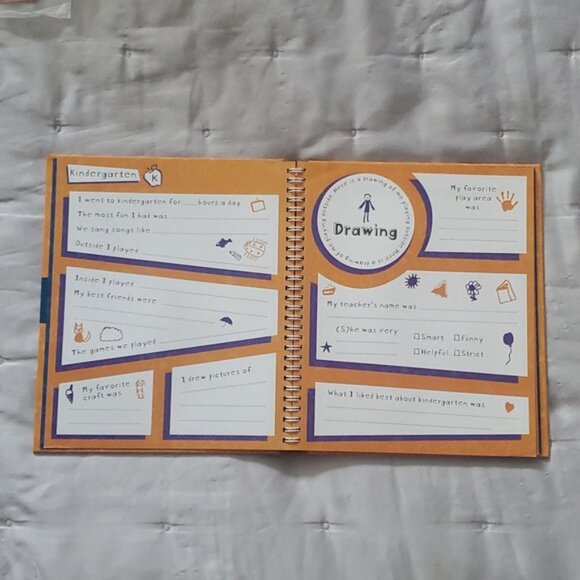 Kindergarten K
I went to kindergarten for hours a day.
The most fun I had was
We sang songs like
Outside I played
Inside I played
My best friends were
The games we played
My favorite
craft was
I drew pictures of
Here is a drawing of me playing outside. Here is a drawing of me playing outside.
Drawing
My favorite
play area
was
My teacher's name was
(S)he was very
Smart Funny
Helpful Strict
What I liked best about kindergarten was